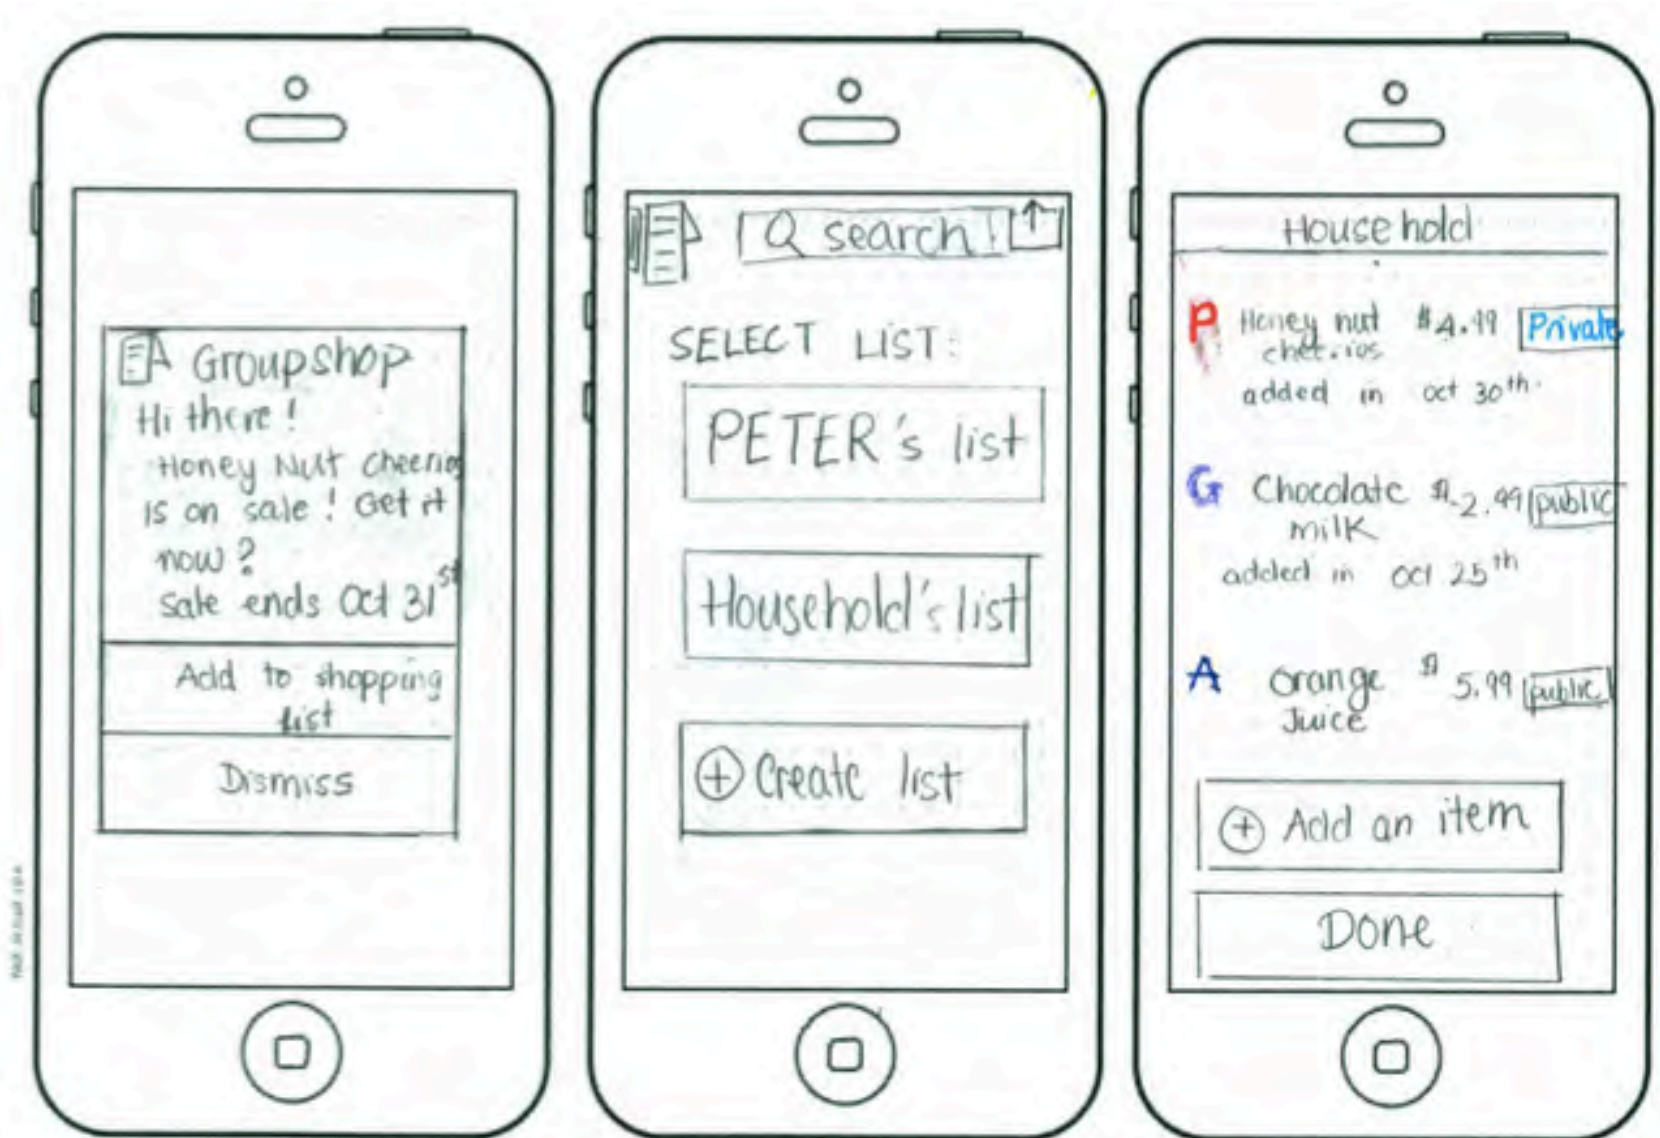 Groupshop
Hi there!
Honey Nut Cheerios
is on sale! Get it
now?
Sale ends Oct 31st
Add to shopping
list
Dismiss
search
SELECT LIST:
PETER's list
Household's list
+ Create list
Household
P Honey nut $4.99 Private
cheerios
added in oct 30th.
G Chocolate $2.99 public
milk
added in oct 25th
A orange $5.99 public
Juice
+ Add an item
Done